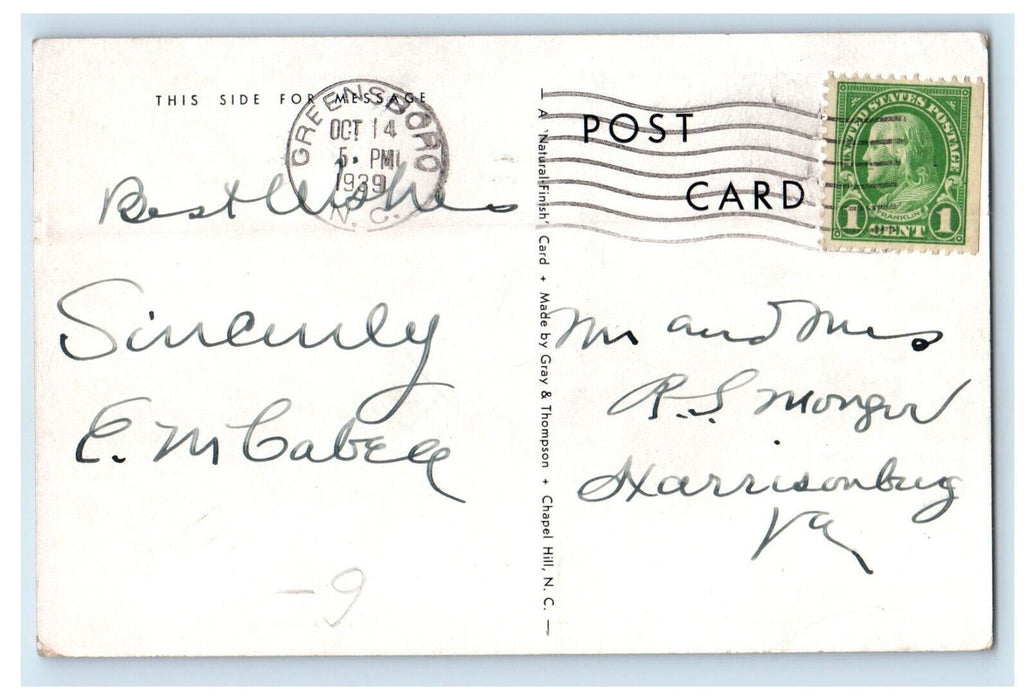 THIS SIDE FOR MESSAGE
GREENSBORO
OCT 14
5 PM
1939
N. C.
Best Wishes
Sincerely
E. M Cabell
–9
⊥ A 'Natural-Finish' Card + Made by Gray & Thompson + Chapel Hill, N. C. —
POST
CARD
UNITED STATES POSTAGE
FRANKLIN
1 CENT 1
Mr and Mrs
R. S Monger
Harrisonburg
Va